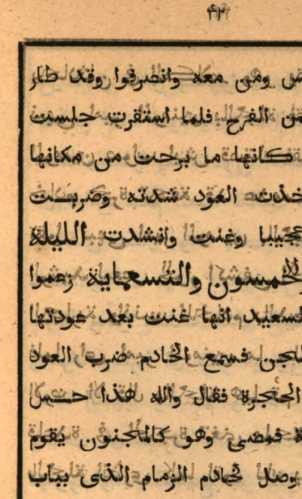 ٤٣
ومن معه وانصرفوا وقد طار
من الفرح فلما استقرت جلست
كانها ما برحت من مكانها
خذت العود شدته وضربت
عجيبا وغنت وانشدت الليلة
الخمسون والتسعماية زعموا
لسعيد انها غنت بعد عودتها
فسمع الخادم ضرب العود
الحنجرة فقال والله هذا حس
ة فمضى وهو كالمجنون يقوم
يوصل خادم الزمام الذى بباب